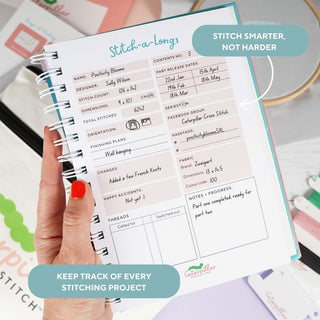 STITCH SMARTER,
NOT HARDER
Stitch-a-Longs
CONTENTS NO. 3
NAME: Positivity Blooms
DESIGNER: Sally Wilson
STITCH COUNT: 126 x 202
DIMENSIONS: 9 x 101 cms
TOTAL STITCHES: 6242
ORIENTATION:
FINISHING PLANS:
Wall hanging
CHANGES:
Added a few French Knots
HAPPY ACCIDENTS:
Not yet :)
THREADS
Called for
Switched out
PART RELEASE DATES:
22nd Jan
15th April
19th Feb
18th May
18th Mar
SERIES? Y/N
FACEBOOK GROUP:
Caterpillar Cross Stitch
HASHTAGS:
positivybloomsSAL
FABRIC
Brand: Zweigart
Dimensions: 13 x 14.5
Colour code: 100
NOTES + PROGRESS:
Part one completed ready for
part two
Caterpillar
STITCH
KEEP TRACK OF EVERY
STITCHING PROJECT